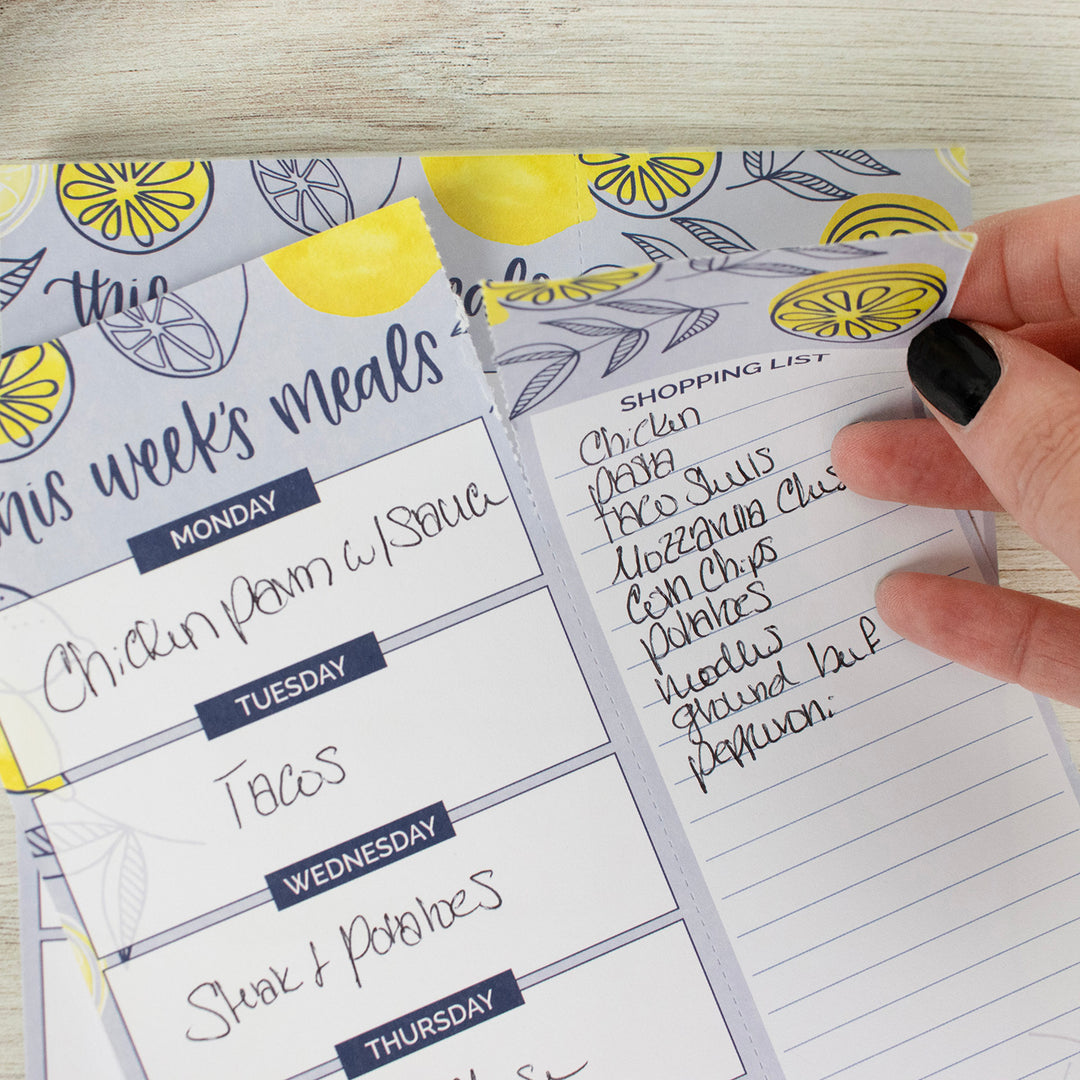 this
this week's meals
MONDAY
Chicken parm w/sauce
TUESDAY
Tacos
WEDNESDAY
Steak + potatoes
THURSDAY
SHOPPING LIST
Chicken
pasta
taco shells
Mozzarella Chee
corn chips
potatoes
noodles
ground beef
pepperoni